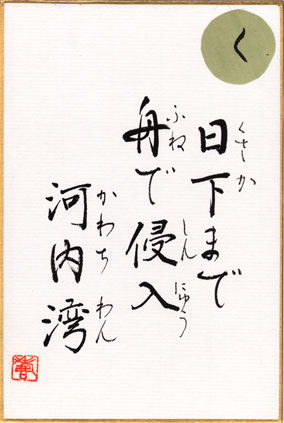 く
日下まで
くさか
舟で侵入
ふね しんにゅう
河内湾
かわち わん